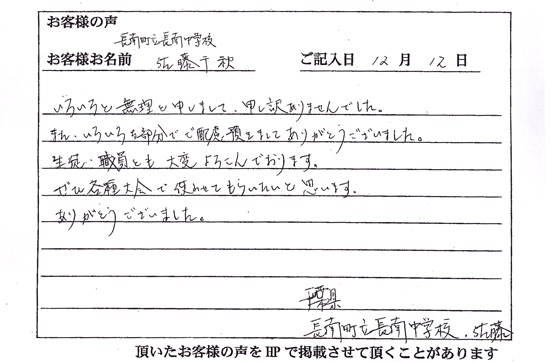 お客様の声
長南町立長南中学校
お客様お名前 佐藤千秋 ご記入日 12月12日
いろいろと無理と申しまして、申し訳ありませんでした。
また、いろいろな部分でご配慮頂きましてありがとうございました。
生徒・職員とも大変よろこんでおります。
ぜひ各種大会で使わせてもらいたいと思います。
ありがとうございました。
千葉県
長南町立長南中学校.佐藤
頂いたお客様の声をHPで掲載させて頂くことがあります